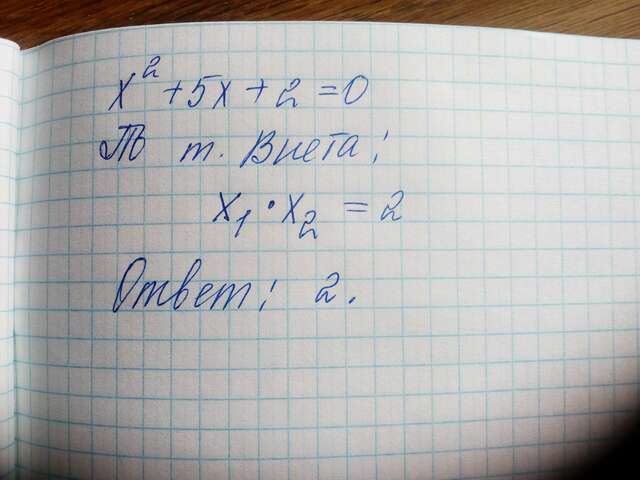 x² + 5x + 2 = 0
По т. Виета:
x₁ · x₂ = 2
Ответ: 2.